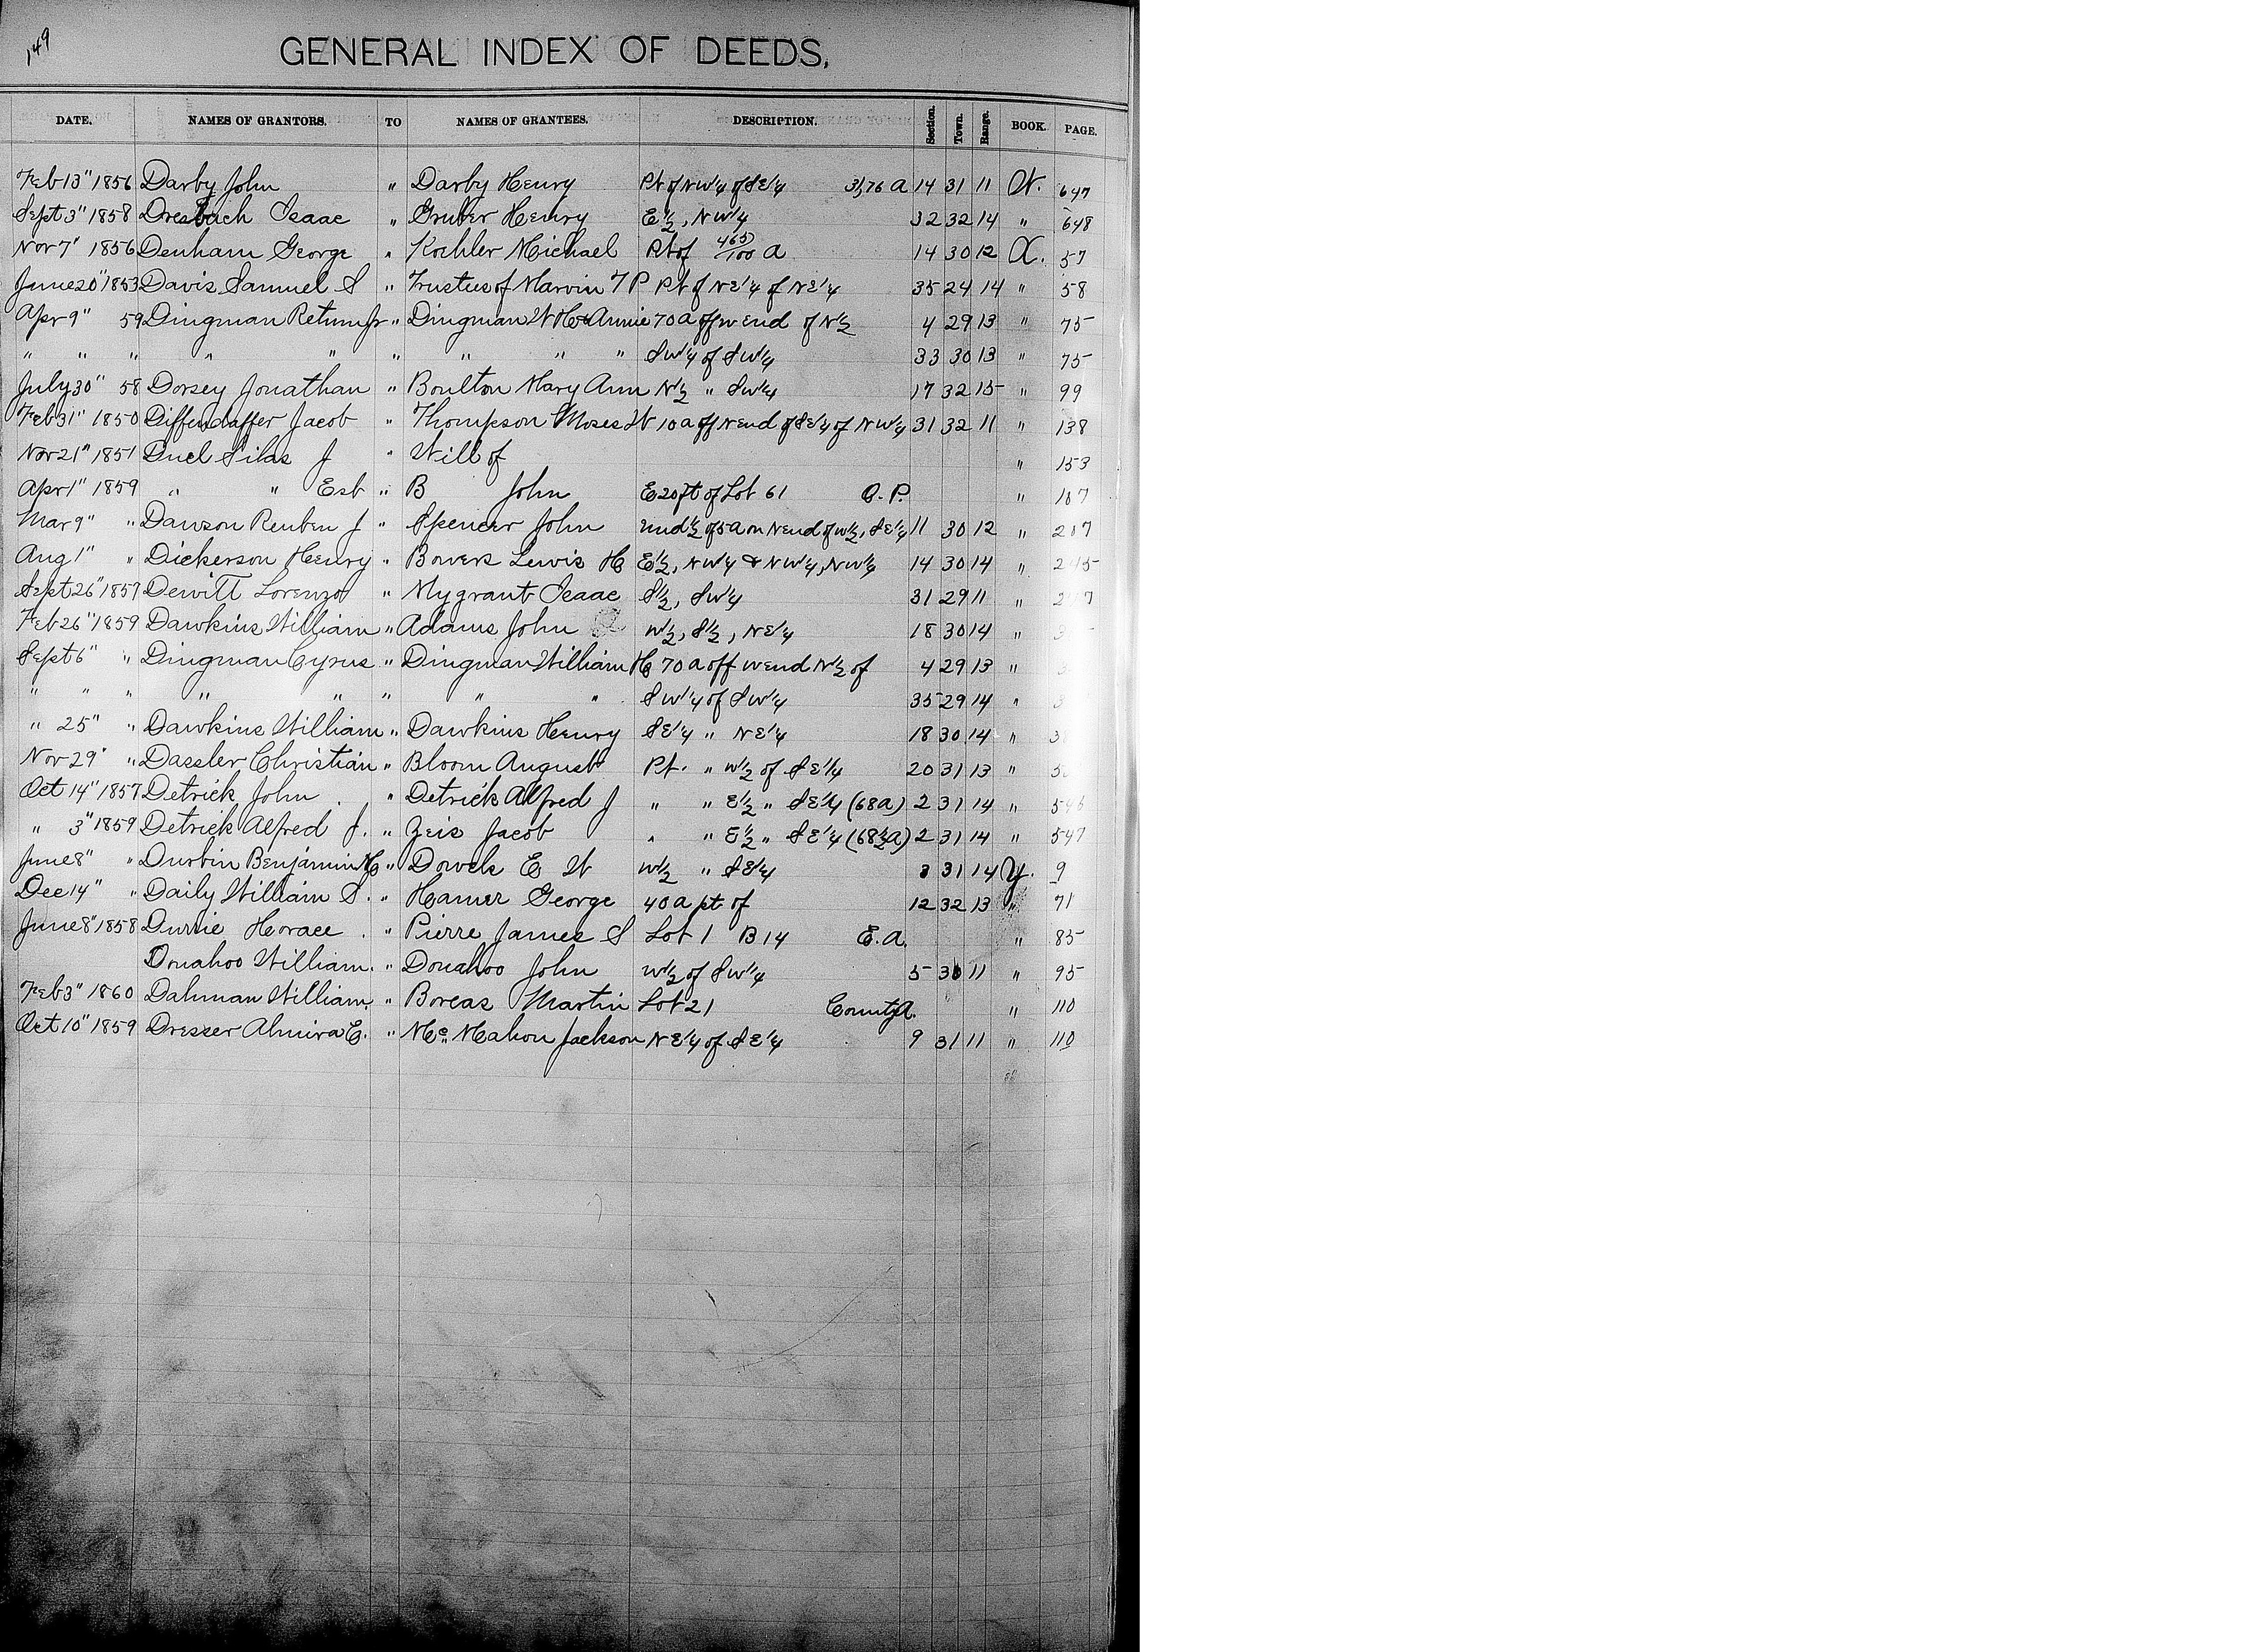 149
GENERAL INDEX OF DEEDS.
DATE. NAMES OF GRANTORS. TO NAMES OF GRANTEES. DESCRIPTION. Section. Town. Range. BOOK. PAGE.
Feb 13" 1856 Darby John " Darby Henry Pt of NW1/4 of SE1/4 31,76 a 14 31 11 W. 647
Sept 3" 1858 Dresbach Isaac " Gruber Henry E1/2, NW1/4 32 32 14 " 648
Nov 7" 1856 Denham George " Kochler Michael Pt of 465/100 a 14 30 12 X. 57
June 20" 1853 Davis Samuel S " Trustees of Marvin T P Pt of NE1/4 of NE1/4 35 24 14 " 58
Apr 9" 59 Dingman Return Jr " Dingman W H & Annie 70 a off W end of N1/2 4 29 13 " 75
" " " " " " " " " SW1/4 of SW1/4 33 30 13 " 75
July 30" 58 Dorsey Jonathan " Boulton Mary Ann N1/2 " SW1/4 17 32 15 " 99
Feb 31" 1850 Diffendaffer Jacob " Thompson Moses W 10 a off N end of SE1/4 of NW1/4 31 32 11 " 138
Nov 21" 1851 Duel Silas J " Will of " 153
Apr 1" 1859 " " Est " B John E 20 ft of Lot 61 O. P. " 187
Mar 9" " Dawson Reuben J " Spencer John und 1/2 of 5 a on N end of W1/2, SE1/4 11 30 12 " 217
Aug 1" " Dickerson Henry " Bowers Lewis H E1/2, NW1/4 & NW1/4, NW1/4 14 30 14 "
Sept 26" 1857 Dewitt Lorenzo " Mygrant Isaac S1/2, SW1/4 31 29 11 "
Feb 26" 1859 Dawkins William " Adams John W1/2, S1/2, NE1/4 18 30 14 "
Sept 6" " Dingman Cyrus " Dingman William H 70 a off W end N1/2 of 4 29 13 "
" " " " " " " " SW1/4 of SW1/4 35 29 14 "
" 25" " Dawkins William " Dawkins Henry SE1/4 " NE1/4 18 30 14 "
Nov 29" " Dassler Christian " Bloom August Pt. " W1/2 of SE1/4 20 31 13 "
Oct 14" 1857 Detrick John " Detrick Alfred J " " E1/2 " SE1/4 (68a) 2 31 14 " 546
" 3" 1859 Detrick Alfred J. " Zeis Jacob " " E1/2 " SE1/4 (68 1/2 a) 2 31 14 " 547
June 8" " Durbin Benjamin H " Dowels E W W1/2 " SE1/4 3 31 14 Y. 9
Dec 14" " Daily William S. " Hamer George 40 a pt of 12 32 13 " 71
June 8" 1858 Durrie Horace " Pierre James S Lot 1 B 14 E. A. " 85
Donahoo William. " Donahoo John W1/2 of SW1/4 5 30 11 " 95
Feb 3" 1860 Dahman William " Boreas Martin Lot 21 County A. " 110
Oct 10" 1859 Dresser Almira E. " Mc Mahon Jackson NE1/4 of SE1/4 9 31 11 " 110